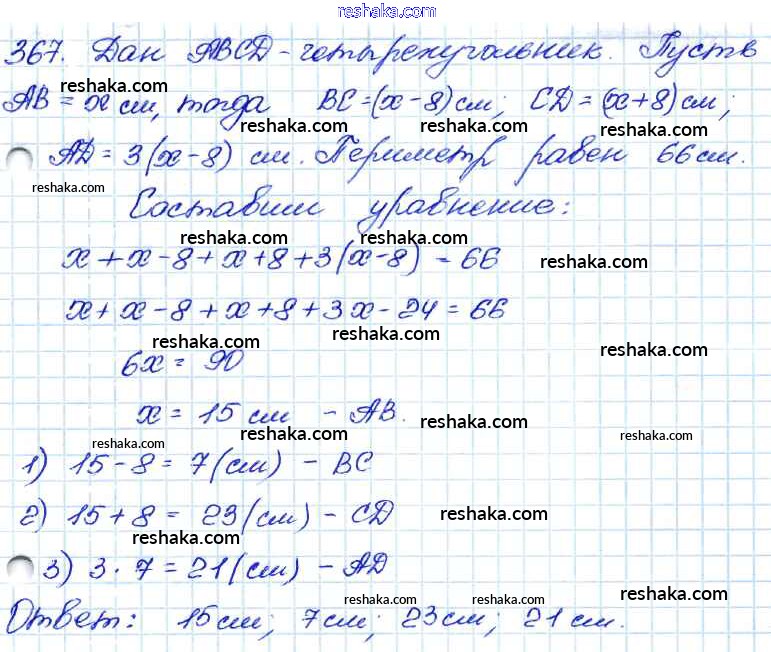 reshaka.com
367. Дан ABCD - четырехугольник. Пусть
reshaka.com
AB = x см, тогда BC = (x - 8) см; CD = (x + 8) см;
reshaka.com reshaka.com reshaka.com
AD = 3(x - 8) см. Периметр равен 66 см.
reshaka.com reshaka.com reshaka.com
Составим уравнение:
reshaka.com reshaka.com
x + x - 8 + x + 8 + 3(x - 8) = 66 reshaka.com
x + x - 8 + x + 8 + 3x - 24 = 66
reshaka.com reshaka.com
6x = 90 reshaka.com
x = 15 см - AB. reshaka.com
reshaka.com reshaka.com reshaka.com
1) 15 - 8 = 7 (см) - BC
reshaka.com
2) 15 + 8 = 23 (см) - CD reshaka.com
reshaka.com
3) 3 · 7 = 21 (см) - AD
reshaka.com reshaka.com reshaka.com
Ответ: 15 см; 7 см; 23 см; 21 см.
reshaka.com reshaka.com